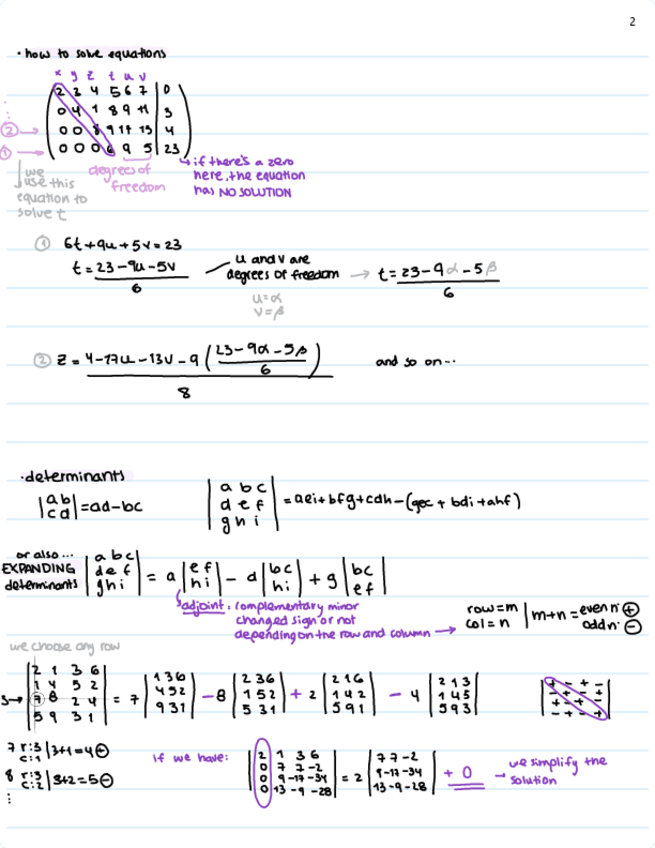 2
· how to solve equations
x y z t u v
2 3 4 5 6 7 | 0
0 4 1 8 9 11 | 3
② → 0 0 8 9 17 13 | 4
① → 0 0 0 6 9 5 | 23
we use this equation to solve t
degrees of freedom
if there's a zero here, the equation has NO SOLUTION
① 6t+9u+5v=23
t = 23-9u-5v / 6
u and v are degrees of freedom
u=α
v=β
→ t = 23-9α-5β / 6
② z = 4-17u-13v-9 (23-9α-5β / 6) / 8
and so on...
·determinants
|a b|
|c d| = ad-bc
|a b c|
|d e f| = aei+bfg+cdh-(gec+bdi+ahf)
|g h i|
or also...
EXPANDING determinants
|a b c|
|d e f|
|g h i|
= a |e f / h i| - d |b c / h i| + g |b c / e f|
adjoint: complementary minor changed sign or not depending on the row and column →
row=m
col=n
m+n = even nº ⊕
odd nº ⊖
we choose any row
|2 1 3 6|
|1 4 5 2|
3→ |7 8 2 4|
|5 9 3 1|
= 7 |1 3 6 / 4 5 2 / 9 3 1| - 8 |2 3 6 / 1 5 2 / 5 3 1| + 2 |2 1 6 / 1 4 2 / 5 9 1| - 4 |2 1 3 / 1 4 5 / 5 9 3|
+ - + -
- + - +
+ - + -
- + - +
7 r:3 c:1 | 3+1=4 ⊕
8 r:3 c:2 | 3+2=5 ⊖
⋮
if we have:
|2 1 3 6|
|0 7 7 -2|
|0 9 -17 -34|
|0 13 -9 -28|
= 2 |7 7 -2 / 9 -17 -34 / 13 -9 -28| + 0
→ we simplify the solution